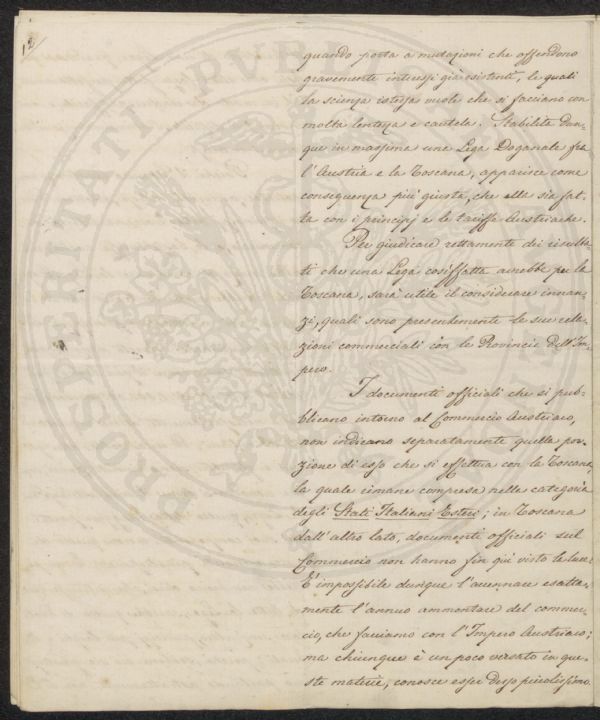 18/
quando porta a mutazioni che offendono
gravemente interessi già esistenti, le quali
la scienza istessa vuole che si facciano con
molta lentezza e cautela. Stabilita dun-
que in massima una Lega Doganale fra
l'Austria e la Toscana, apparisce come
conseguenza più giusta, che ella sia fat-
ta con i principj e le tariffe Austriache.
Per giudicare rettamente dei risulta-
ti che una Lega cosiffatta avrebbe per la
Toscana, sarà utile il considerare innan-
zi, quali sono presentemente le sue rela-
zioni commerciali con le Provincie dell'Im-
pero.
I documenti officiali che si pub-
blicano intorno al Commercio Austriaco,
non indicano separatamente quella por-
zione di esso che si effettua con la Toscana,
la quale rimane compresa nella categoria
degli Stati Italiani Esteri; in Toscana
dall'altro lato, documenti officiali sul
Commercio non hanno fin quì visto la luce.
È impossibile dunque l'accennare esatta-
mente l'annuo ammontare del commer-
cio, che facciamo con l'Impero Austriaco;
ma chiunque è un poco versato in que-
ste materie, conosce esser desso piccolissimo.
PROSPERITATI PUBL